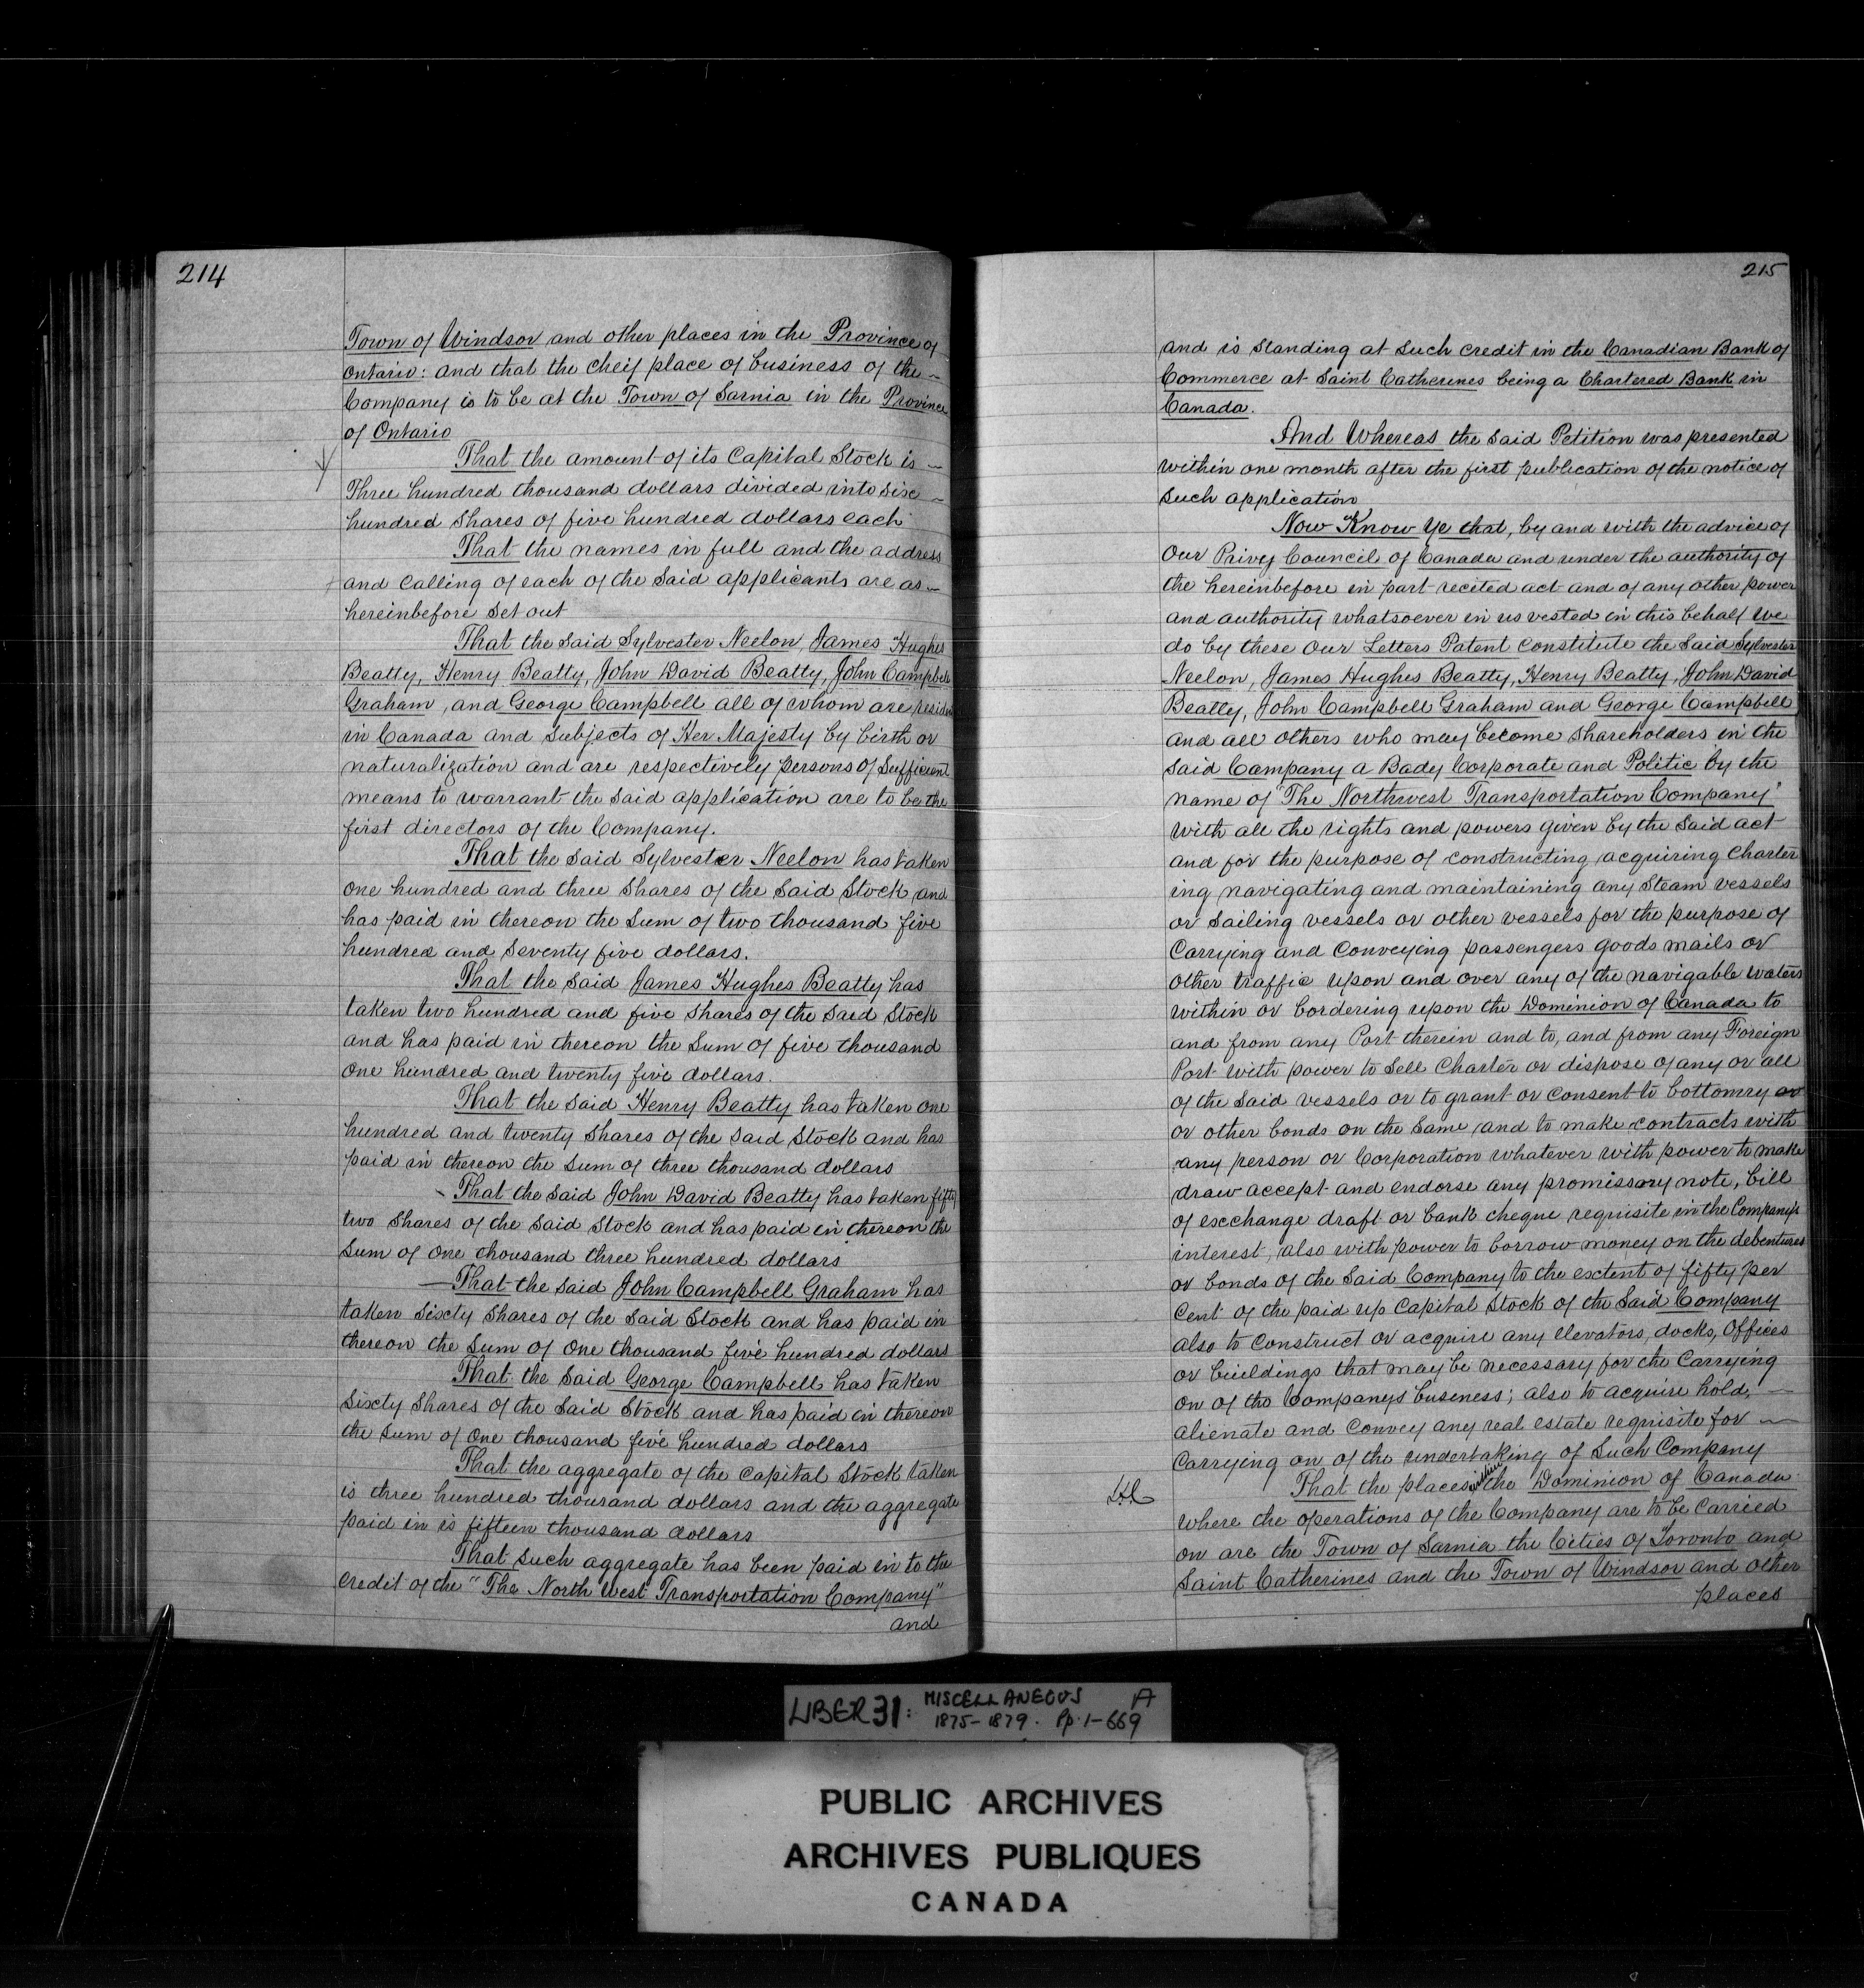 214
Town of Windsor and other places in the Province of
Ontario: and that the cheif place of business of the
Company is to be at the Town of Sarnia in the Province
of Ontario
That the amount of its Capital Stock is
Three hundred thousand dollars divided into six
hundred shares of five hundred dollars each
That the names in full and the address
and calling of each of the said applicants are as
hereinbefore set out
That the said Sylvester Neelon, James Hughes
Beatty, Henry Beatty, John David Beatty, John Campbell
Graham, and George Campbell all of whom are resident
in Canada and Subjects of Her Majesty by birth or
naturalization and are respectively persons of sufficient
means to warrant the said application are to be the
first directors of the Company.
That the said Sylvester Neelon has taken
one hundred and three shares of the said Stock and
has paid in thereon the sum of two thousand five
hundred and seventy five dollars.
That the said James Hughes Beatty has
taken two hundred and five shares of the said Stock
and has paid in thereon the sum of five thousand
one hundred and twenty five dollars.
That the said Henry Beatty has taken one
hundred and twenty shares of the said Stock and has
paid in thereon the sum of three thousand dollars
That the said John David Beatty has taken fifty
two shares of the said Stock and has paid in thereon the
sum of one thousand three hundred dollars
That the said John Campbell Graham has
taken sixty shares of the said Stock and has paid in
thereon the sum of one thousand five hundred dollars
That the said George Campbell has taken
sixty shares of the said Stock and has paid in thereon
the sum of one thousand five hundred dollars
That the aggregate of the Capital Stock taken
is three hundred thousand dollars and the aggregate
paid in is fifteen thousand dollars
That such aggregate has been paid in to the
credit of the "The North West Transportation Company"
and
215
and is standing at such credit in the Canadian Bank of
Commerce at Saint Catherines being a Chartered Bank in
Canada.
And Whereas the said Petition was presented
within one month after the first publication of the notice of
such application
Now Know Ye that, by and with the advice of
Our Privy Council of Canada and under the authority of
the hereinbefore in part recited act and of any other power
and authority whatsoever in us vested in this behalf We
do by these Our Letters Patent Constitute the said Sylvester
Neelon, James Hughes Beatty, Henry Beatty, John David
Beatty, John Campbell Graham and George Campbell
and all others who may become shareholders in the
said Company a Body Corporate and Politic by the
name of "The Northwest Transportation Company"
with all the rights and powers given by the said act
and for the purpose of constructing, acquiring Charter
ing navigating and maintaining any Steam vessels
or Sailing vessels or other vessels for the purpose of
Carrying and Conveying passengers goods mails or
other traffic upon and over any of the navigable waters
within or bordering upon the Dominion of Canada to
and from any Port therein and to, and from any Foreign
Port with power to sell Charter or dispose of any or all
of the said vessels or to grant or consent to bottomry or
or other bonds on the same, and to make contracts with
any person or Corporation whatever with power to make
draw accept and endorse any promissory note, bill
of exchange draft or bank cheque requisite in the Company's
interest, also with power to borrow money on the debentures
or bonds of the said Company to the extent of fifty per
Cent of the paid up Capital Stock of the Said Company
also to construct or acquire any elevators, docks, Offices
or buildings that may be necessary for the Carrying
on of the Companys business; also to acquire hold,
alienate and Convey any real estate requisite for
Carrying on of the undertaking of such Company
That the places within the Dominion of Canada
where the operations of the Company are to be carried
on are the Town of Sarnia the Cities of Toronto and
Saint Catherines and the Town of Windsor and other
places
LIBER 31: MISCELLANEOUS A
1875-1879. Pp. 1-669
PUBLIC ARCHIVES
ARCHIVES PUBLIQUES
CANADA